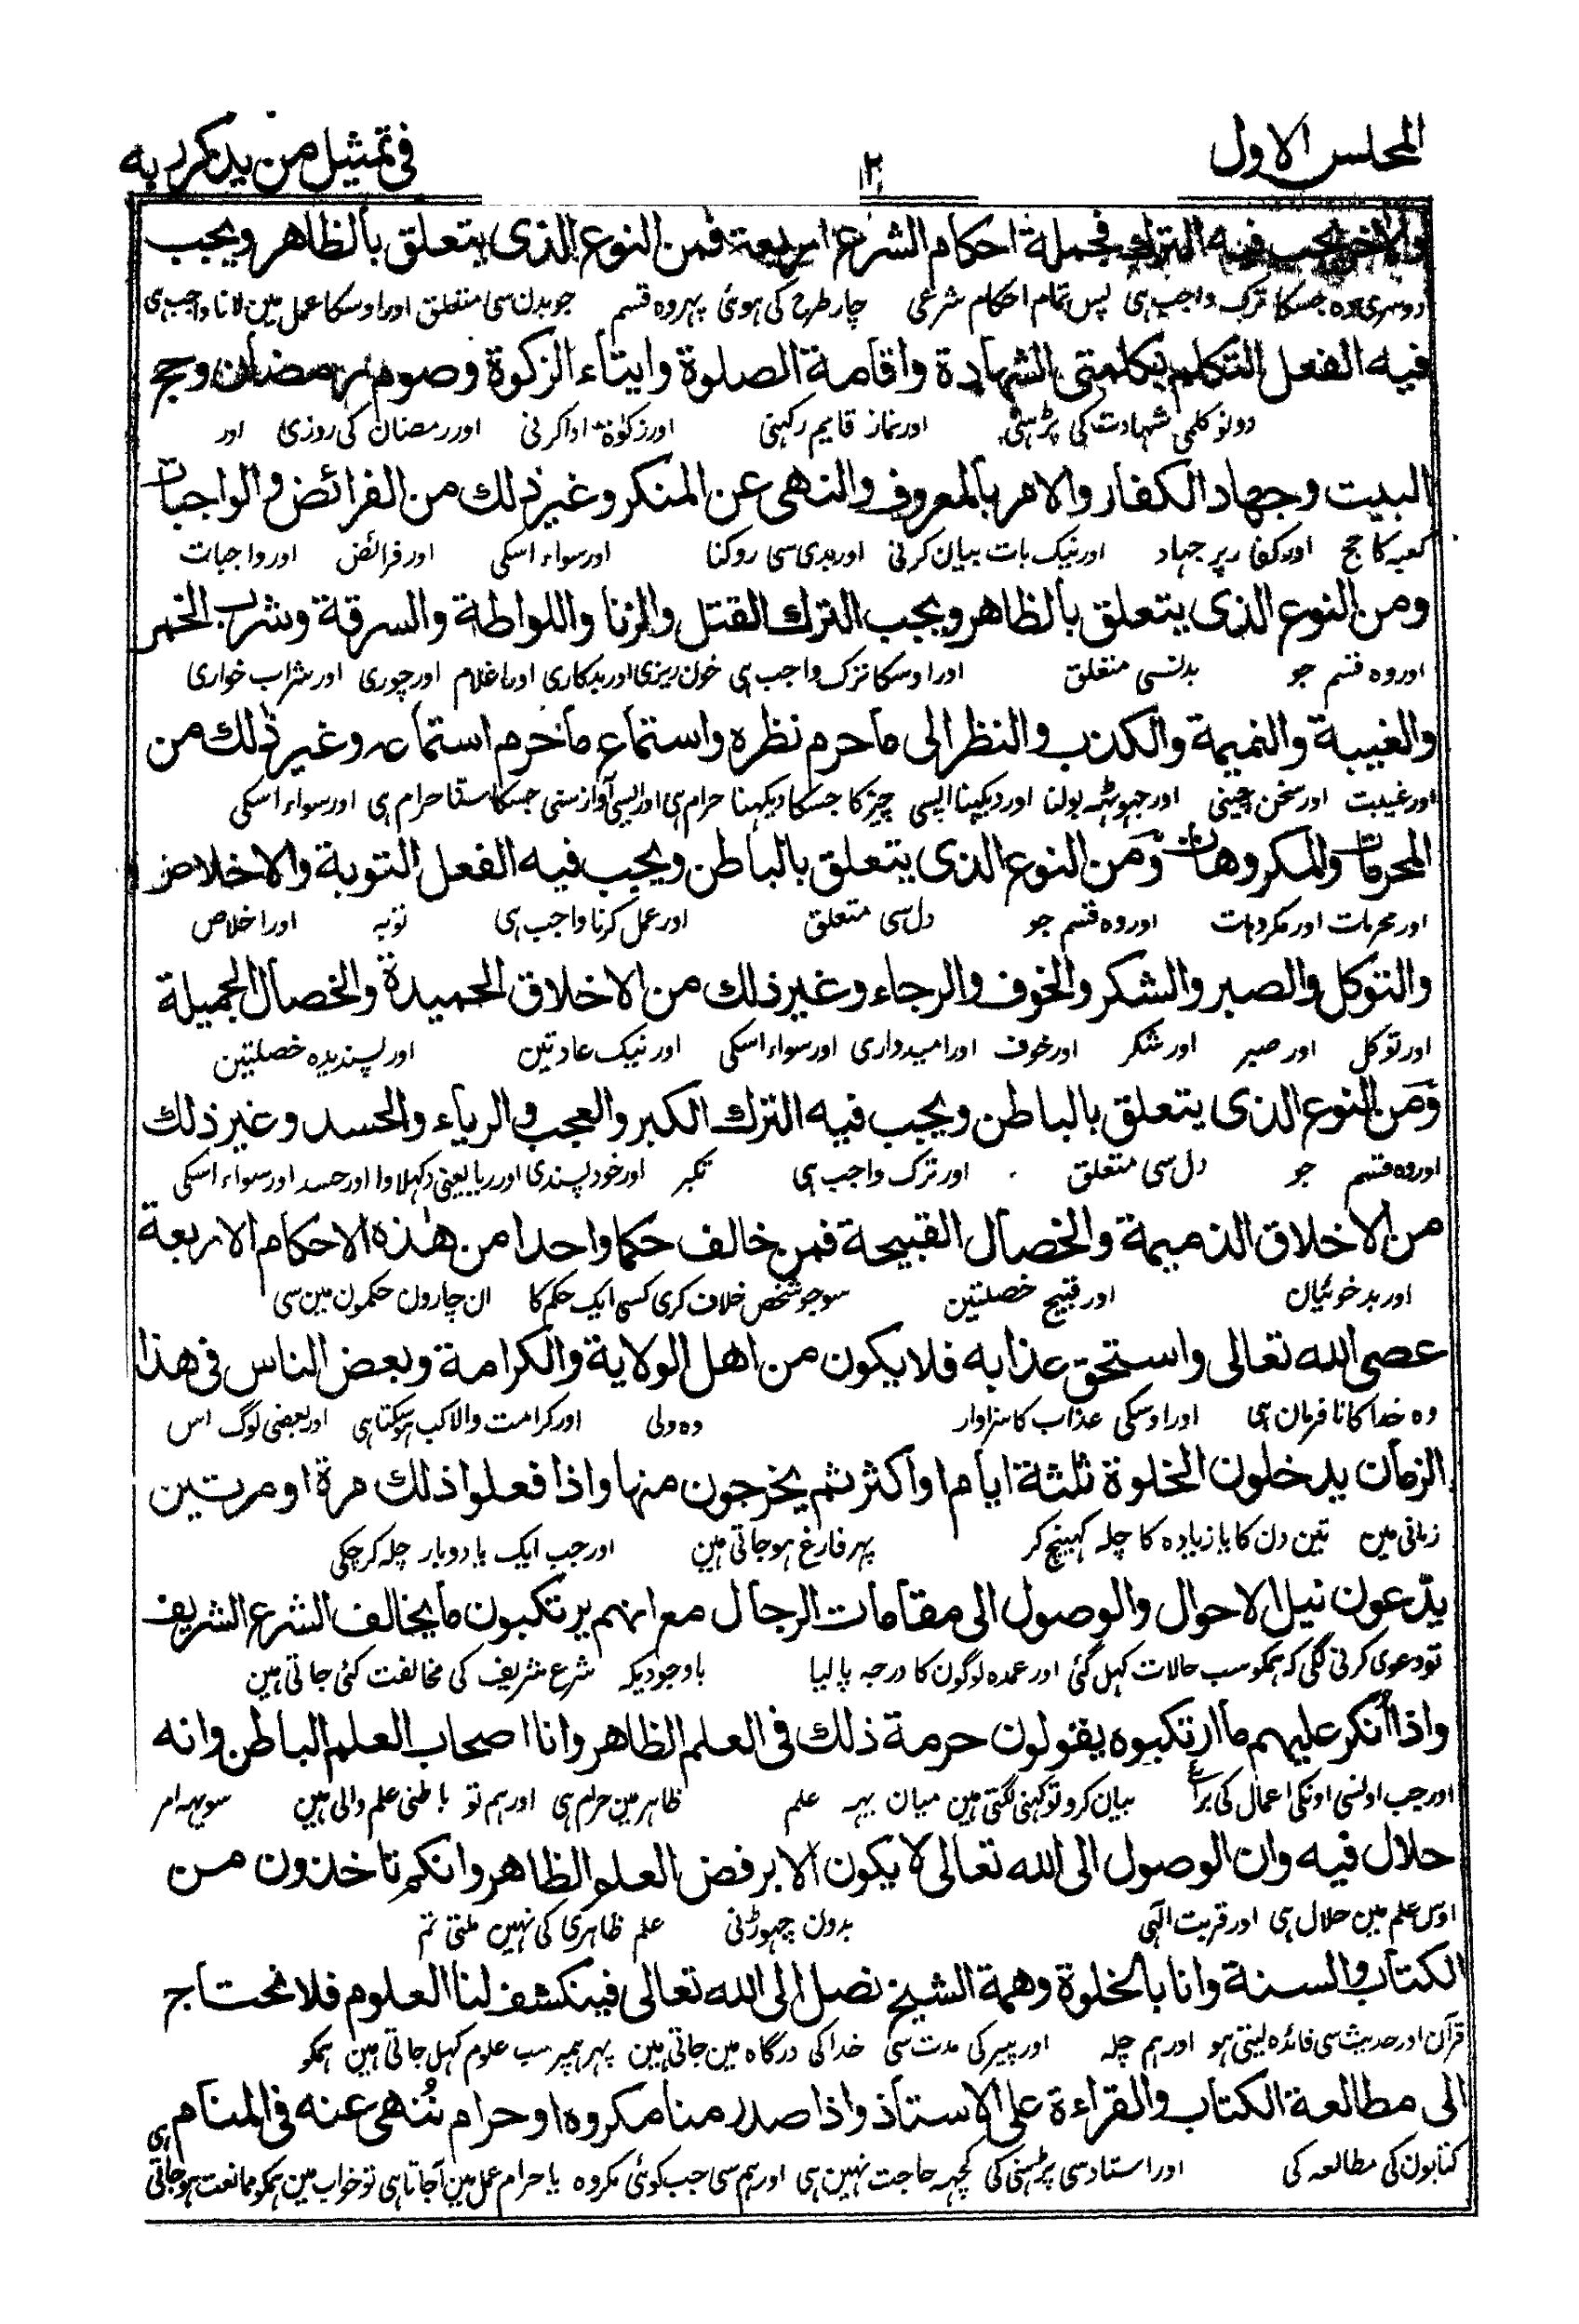 المجلس الاول
١٢
فی تمثیل من یذکر ربه
والاخر یجب فیه الترك فجملة احکام الشرع اربعة فمن النوع الذی یتعلق بالظاهر ویجب
دوسری وه جسکا ترک واجب ہی پس تمام احکام شرعی چار طرح کی ہوئی پہر وه قسم جو بدن سی متعلق اور اوسکا عمل مین لانا واجب ہی
فیه الفعل التکلم بکلمتی الشهادة واقامة الصلوة وایتاء الزکوة وصوم رمضان وحج
دونو کلمی شہادت کی پڑہنی اور نماز قایم رکہنی اور زکوٰة ادا کرنی اور رمضان کی روزی اور
البیت وجهاد الکفار والامر بالمعروف والنهی عن المنکر وغیر ذلك من الفرائض والواجبات
کعبہ کا حج اور کفار پر جہاد اور نیک بات بیان کرنی اور بدی سی روکنا اور سواء اسکی اور فرائض اور واجبات
ومن النوع الذی یتعلق بالظاهر ویجب الترك القتل والزنا واللواطة والسرقة وشرب الخمر
اور وه قسم جو بدنسی متعلق اور اوسکا ترک واجب ہی خون ریزی اور بدکاری اور اغلام اور چوری اور شراب خواری
والغیبة والنمیمة والکذب والنظر الی ماحرم نظره واستماع ماحرم استماعه وغیر ذلك من
اور غیبت اور سخن چینی اور جہوٹہہ بولنا اور دیکہنا ایسی چیز کا جسکا دیکہنا حرام ہی اور ایسی آواز سنی جسکا سننا حرام ہی اور سواء اسکی
المحرمات والمکروهات ومن النوع الذی یتعلق بالباطن ویجب فیه الفعل التوبة والاخلاص
اور محرمات اور مکروہات اور وه قسم جو دل سی متعلق اور عمل کرنا واجب ہی توبہ اور اخلاص
والتوکل والصبر والشکر والخوف والرجاء وغیر ذلك من الاخلاق الحمیدة والخصال الجمیلة
اور توکل اور صبر اور شکر اور خوف اور امیدواری اور سواء اسکی اور نیک عادتین اور پسندیده خصلتین
ومن النوع الذی یتعلق بالباطن ویجب فیه الترك الکبر والعجب والریاء والحسد وغیر ذلك
اور وه قسم جو دل سی متعلق اور ترک واجب ہی تکبر اور خود پسندی اور ریا یعنی دکہلاوا اور حسد اور سواء اسکی
من الاخلاق الذمیمة والخصال القبیحة فمن خالف حکما واحدا من هٰذه الاحکام الاربعة
اور بد خوئیان اور قبیح خصلتین سو جو شخص خلاف کری کسی ایک حکم کا ان چارون حکمون مین سی
عصی الله تعالی واستحق عذابه فلا یکون من اهل الولایة والکرامة وبعض الناس فی هذا
وه خدا کا نافرمان ہی اور اوسکی عذاب کا سزاوار وه ولی اور کرامت والا کب ہو سکتا ہی اور بعضی لوگ اس
الزمان یدخلون الخلوة ثلثة ایام او اکثر ثم یخرجون منها واذا فعلوا ذلك مرة او مرتین
زمانی مین تین دن کا یا زیاده کا چلہ کہینچ کر پہر فارغ ہو جاتی ہین اور جب ایک یا دوبار چلہ کر چکی
یدّعون نیل الاحوال والوصول الی مقامات الرجال مع انهم یرتکبون مایخالف الشرع الشریف
تو دعوی کرتی لگی کہ ہمکو سب حالات کہل گئی اور عمده لوگون کا درجہ پا لیا باوجودیکہ شرع شریف کی مخالفت کئی جاتی ہین
واذا اُنکر علیهم ما ارتکبوه یقولون حرمة ذلك فی العلم الظاهر وانا اصحاب العلم الباطن وانه
اور جب اونسی اونکی اعمال کی برائی بیان کرو تو کہنی لگتی ہین میان یہہ علم ظاہر مین حرام ہی اور ہم تو باطنی علم والی ہین سو یہہ امر
حلال فیه وان الوصول الی الله تعالی لا یکون الا برفض العلم الظاهر وانکم تاخذون من
اوس علم مین حلال ہی اور قربت الٰہی بدون چہوڑنی علم ظاہری کی نہین ملتی تم
الکتاب والسنة وانا بالخلوة وهمة الشیخ نصل الی الله تعالی فینکشف لنا العلوم فلا نحتاج
قرآن اور حدیث سی فائده لیتی ہو اور ہم چلہ اور پیر کی مدت سی خدا کی درگاه مین جاتی ہین پہر ہمپر سب علوم کہل جاتی ہین ہمکو
الی مطالعة الکتاب والقراءة علی الاستاذ واذا صدر منا مکروه او حرام نُنهی عنه فی المنام
کتابون کی مطالعہ کی اور استاد سی پڑہنی کی کچہہ حاجت نہین ہی اور ہم سی جب کوئی مکروه یا حرام عمل مین آجاتا ہی تو خواب مین ہمکو ممانعت ہو جاتی ہی